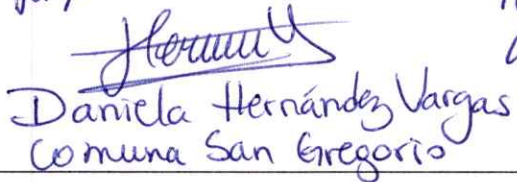 Daniela Hernández Vargas
Comuna San Gregorio